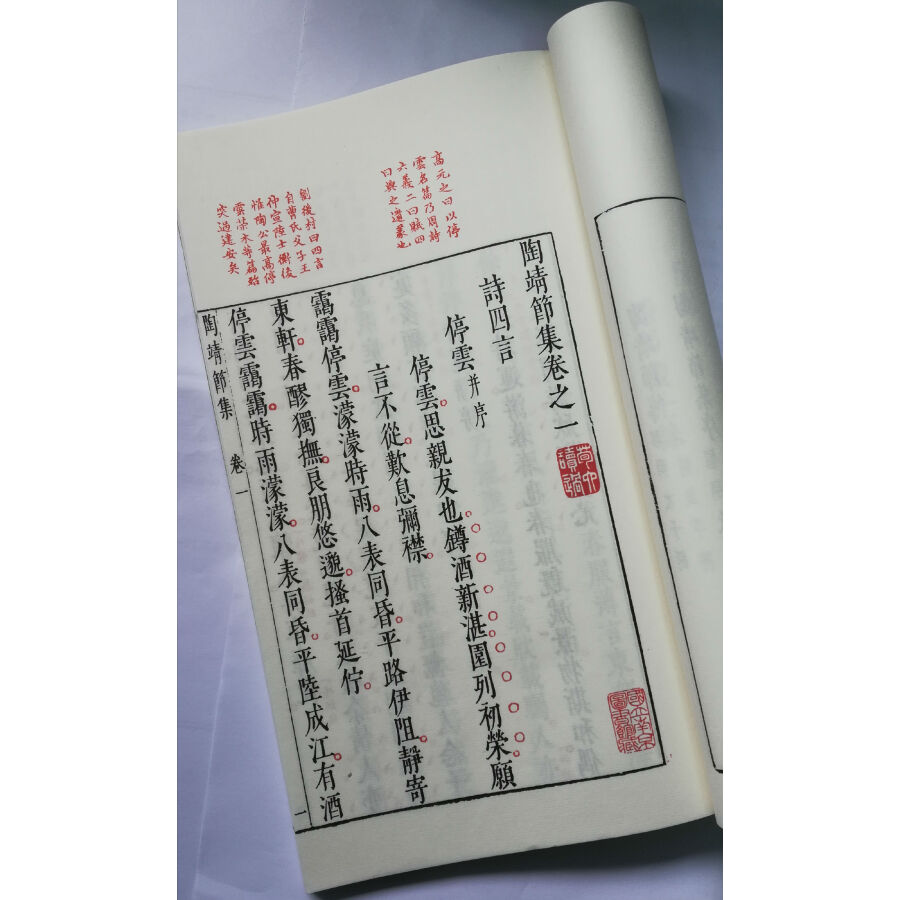 高元之曰以停
雲名篇乃周詩
六義二曰賦四
曰興之遺義也
劉後村曰四言
自曹氏父子王
仲宣陸士衡後
惟陶公最高停
雲榮木等篇殆
突過建安矣
陶靖節集卷之一
讀過
圖書館藏
詩四言
停雲并序
停雲思親友也罇酒新湛園列初榮願
言不從歎息彌襟
靄靄停雲濛濛時雨八表同昏平路伊阻靜寄
東軒春醪獨撫良朋悠邈搔首延佇
停雲靄靄時雨濛濛八表同昏平陸成江有酒
陶靖節集 卷一 一